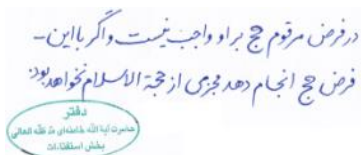 در فرض مرقوم حج بر او واجب نیست و اگر با این-
فرض حج انجام دهد مجزی از حجة الاسلام نخواهد بود.
دفتر
حضرت آیة الله خامنه‌ای مد ظله العالی
بخش استفتاءات